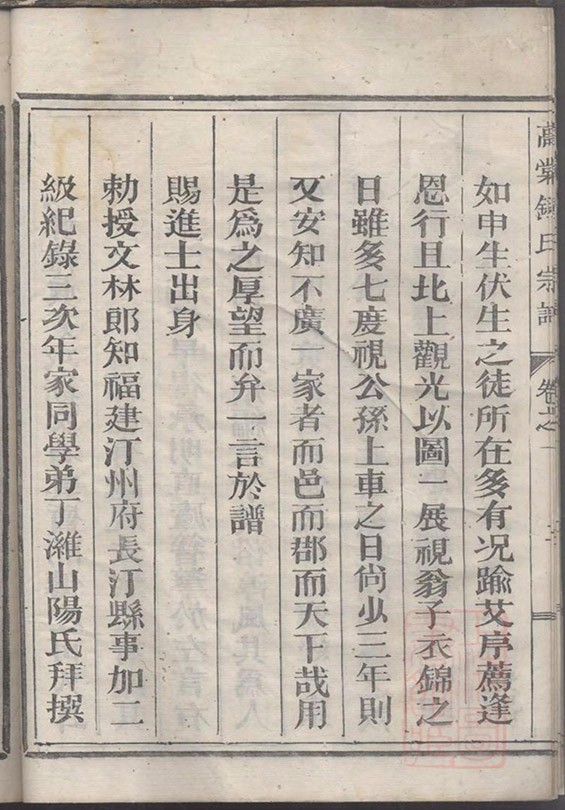 萬棠鍾氏宗譜 卷之一
如申生伏生之徒所在多有况踰艾序薦逢
恩行且北上觀光以圖一展視翁子衣錦之
日雖多七度視公孫上車之日尙少三年則
又安知不廣一家者而邑而郡而天下哉用
是爲之厚望而弁一言於譜
賜進士出身
勅授文林郎知福建汀州府長汀縣事加二
級紀錄三次年家同學弟丁濰山陽氏拜撰